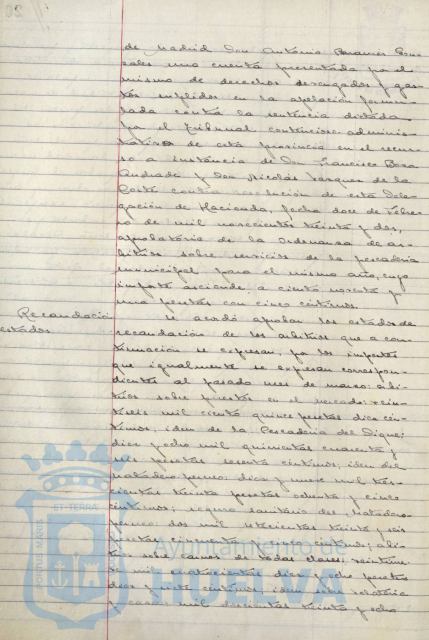 de Madrid Don Antonio Ramirez Gon-
zales una cuenta presentada por el
mismo de derechos devengados y gas-
tos suplidos en la apelación formu-
lada contra la sentencia dictada
por el Tribunal contencioso adminis-
trativo de esta provincia en el recur-
so a instancia de Don Francisco Bora
Andrade y Don Nicolás Vazquez de la
Corte contra resolución de esta Dele-
gación de Hacienda, fecha doce de Febre-
ro de mil novecientos treinta y dos,
aprobatoria de la Ordenanza de ar-
bitrios sobre servicios de la pescadería
municipal para el mismo año, cuyo
importe asciende a ciento noventa y
una pesetas con cinco céntimos.
Recaudación
estados
Se acordó aprobar los estados de
recaudación de los arbitrios que a con-
tinuación se expresan, por los importes
que igualmente se expresan correspon-
dientes al pasado mes de marzo: arbi-
trios sobre puestos en el mercado: veinti-
seis mil ciento quince pesetas diez cén-
timos; idem de la Pescadería del Dique:
diez y ocho mil quinientas cuarenta y
seis pesetas sesenta céntimos; idem del
matadero: diez y nueve mil tres-
cientas treinta pesetas ochenta y cinco
céntimos; seguro sanitario del Matadero
dos mil setecientas treinta y seis
pesetas cincuenta y cinco céntimos; arbi-
trio sobre carnes de todas clases: veintiun-
mil cuatrocientas diez y ocho pesetas
diez y siete céntimos; idem sobre
y caza: mil doscientas treinta y ocho
PORTUS MARIS
ET TERRA
Ayuntamiento de
HUELVA